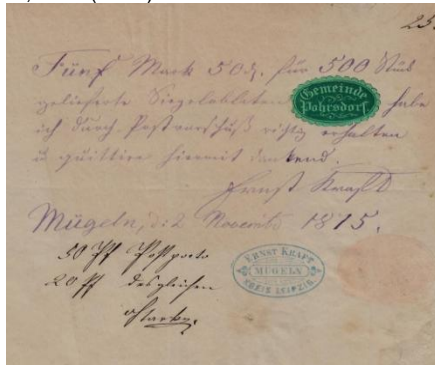 25.
Fünf Mark 50 d. für 500 Stück
gelieferte Siegeloblaten habe
Gemeinde
Pohrsdorf.
ich durch Postvorschuß richtig erhalten
u quittire hiermit dankend.
Ernst Kraft
Mügeln, d: 2 Novembr 1875.
50 Pf Postporto
20 Pf desgleichen
ERNST KRAFT
MÜGELN
KREIS LEIPZIG